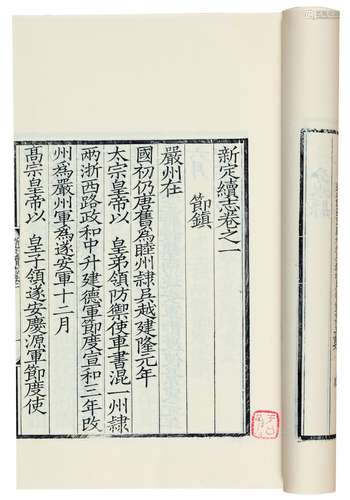 新定續志卷之一
節鎮
嚴州在
國初仍唐舊為睦州隸吳越建隆元年
太宗皇帝以 皇弟領防禦使車書混一州隸
兩浙西路政和中升建德軍節度宣和三年改
州為嚴州軍為遂安軍十二月
髙宗皇帝以 皇子領遂安慶源軍節度使